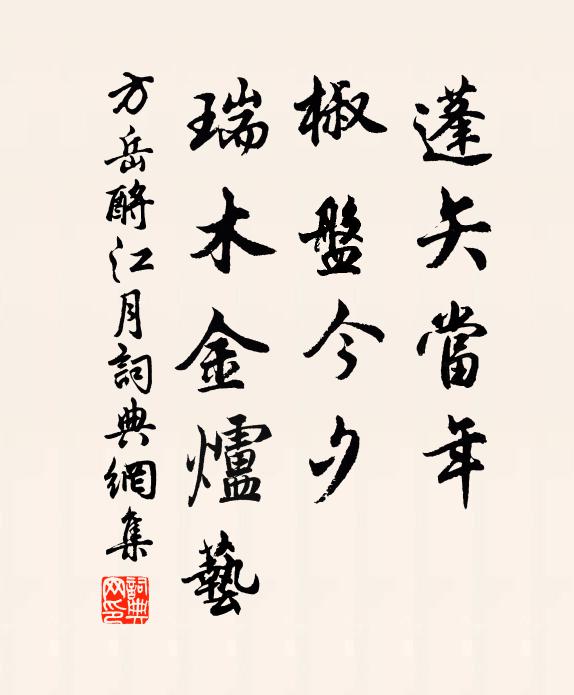 蓬矢當年
椒盤今夕
瑞木金爐藝
方岳酹江月詞典網集
詞典網印